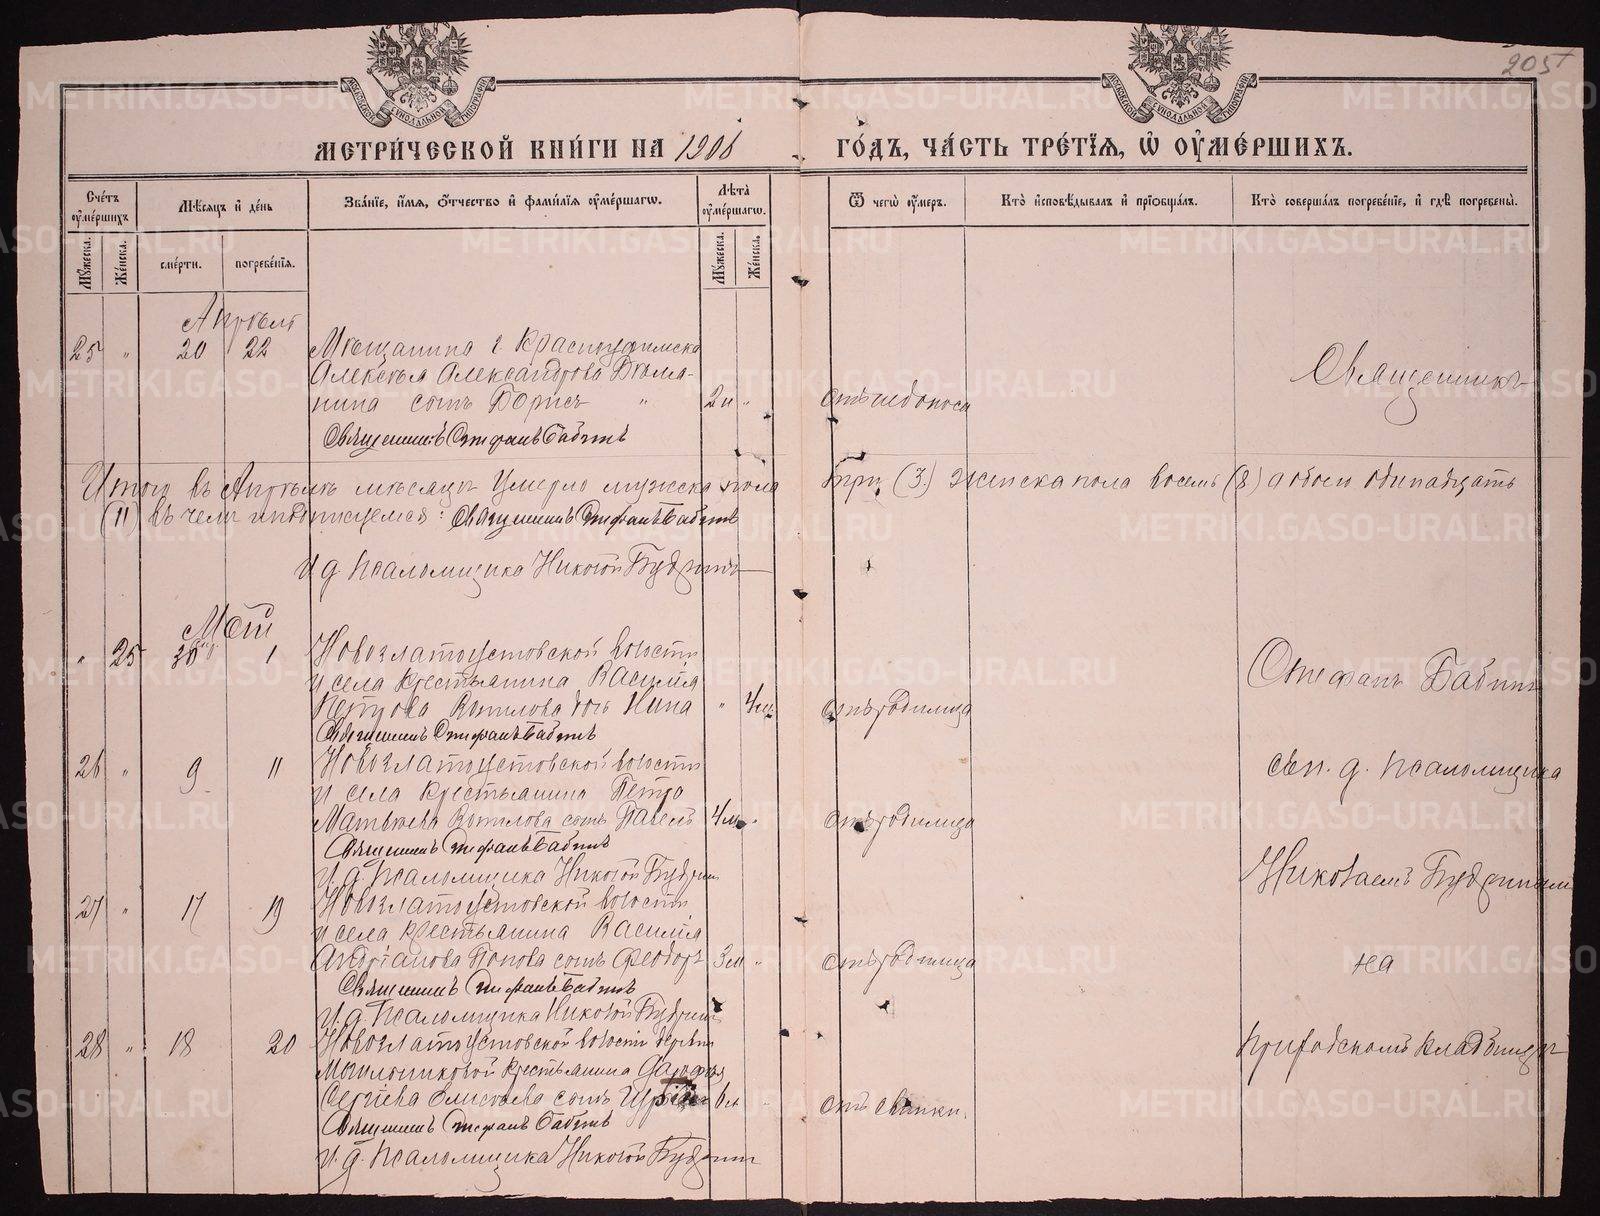 205
МЕТРИЧЕСКОЙ КНИГИ НА 1906 ГОДЪ, ЧАСТЬ ТРЕТІЯ, Ѡ ОУМЕРШИХЪ.
Счетъ оумершихъ
Мѣсяцъ и день
Званіе, имя, отчество и фамилія оумершагѡ.
Лѣта оумершагѡ.
Ѿ чегѡ оумеръ.
Кто исповѣдывалъ и пріобщалъ.
Кто совершалъ погребеніе, и гдѣ погребены.
Мужеска. Женска. смерти. погребенія. Мужеска. Женска.
Апрѣль
25 " 20 22 Мѣщанина г. Красноуфимска
Алексѣя Александрова
сынъ Борисъ " 2 н " отъ поноса
Священникъ
Священникъ Стефанъ Бабинъ
Итого въ Апрѣлѣ мѣсяцѣ умерло мужеска пола три (3) женска пола восемь (8) а обоего одинадцать
(11) въ чемъ и подписуемся: Священникъ Стефанъ Бабинъ
И. д. псаломщика Николай Будринъ
Май
" 25 30 1 Новозлатоустовской волости
и села крестьянина Василія
Петрова Копылова дочь Нина " 4 м. отъ родимца
Стефанъ Бабинъ
Священникъ Стефанъ Бабинъ
26 " 9 11 Новозлатоустовской волости
и села крестьянина Петра
Матвѣева Копылова сынъ Павелъ 4 м " отъ родимца
съ и. д. псаломщика
Священникъ Стефанъ Бабинъ
И. д. псаломщика Николай Будринъ
Николаемъ Будринымъ
27 " 17 19 Новозлатоустовской волости
и села крестьянина Василія
Андріанова Попова сынъ Феодоръ 3 м " отъ родимца
на
Священникъ Стефанъ Бабинъ
И. д. псаломщика Николай Будринъ
28 " 18 20 Новозлатоустовской волости деревни
приходскомъ кладбищѣ
крестьянина
Сергіева сынъ 6 л " отъ свинки.
Священникъ Стефанъ Бабинъ
И. д. псаломщика Николай Будринъ
METRIKI.GASO-URAL.RU